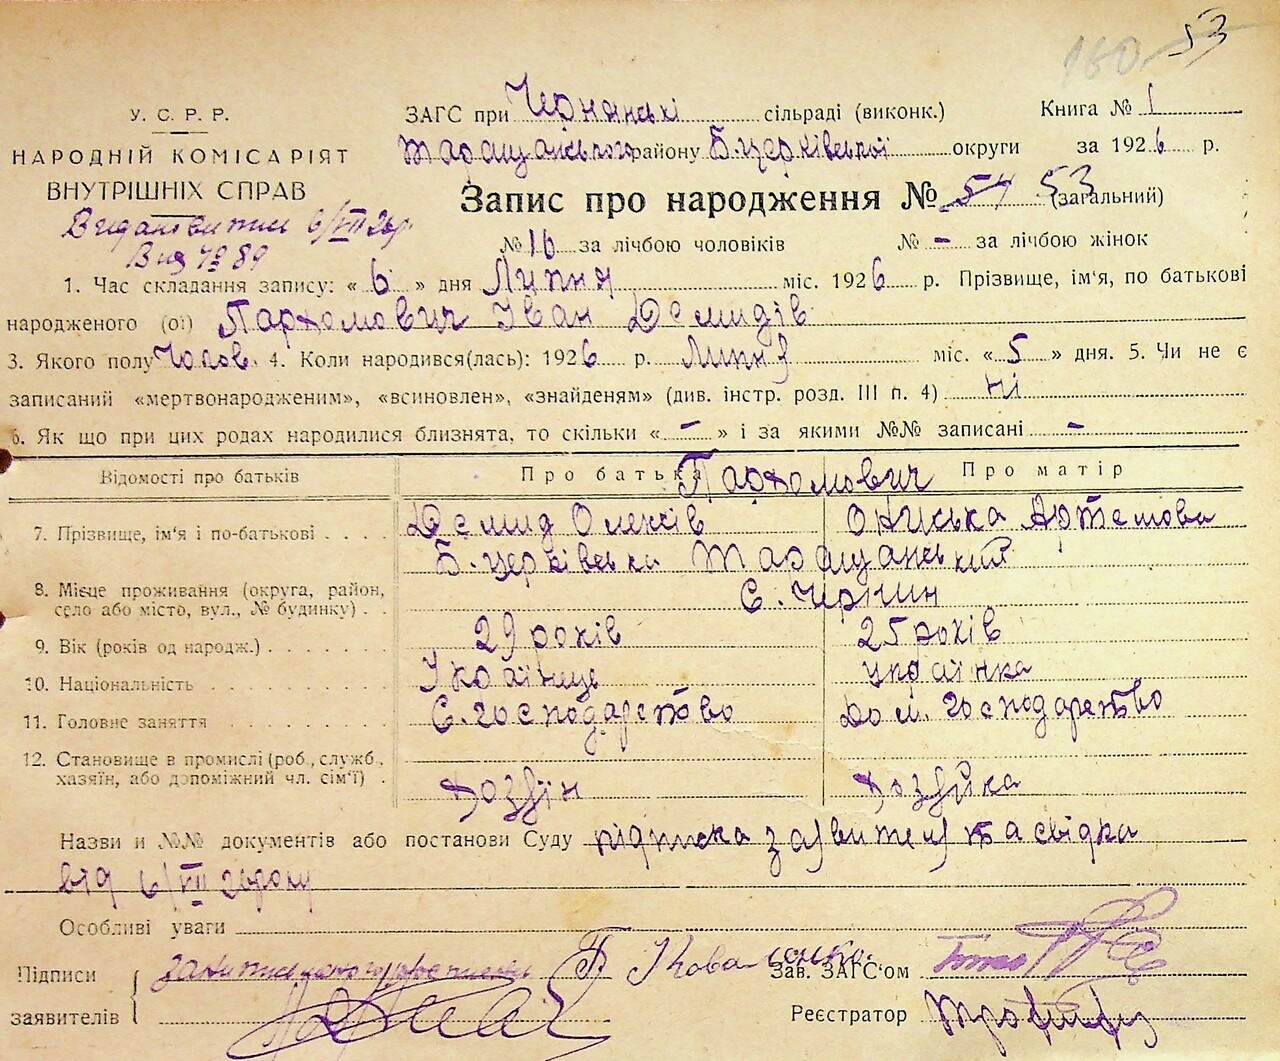 160 53
У. С. Р. Р.
НАРОДНІЙ КОМІСАРІЯТ
ВНУТРІШНІХ СПРАВ
6/VII 26 р.
Вид № 89
ЗАГС при Чернинські сільраді (виконк.) Книга № 1
Таращанського району Б.церківської округи за 1926 р.
Запис про народження № 54 53 (загальний)
№ 16 за лічбою чоловіків № - за лічбою жінок
1. Час складання запису: « 6 » дня Липня міс. 1926 р. Прізвище, ім'я, по батькові
народженого (ої) Пархомович Іван Демидів
3. Якого полу Чолов. 4. Коли народився(лась): 1926 р. Липня міс. «5» дня. 5. Чи не є
записаний «мертвонародженим», «всиновлен», «знайденям» (див. інстр. розд. III п. 4) ні
6. Як що при цих родах народилися близнята, то скільки « - » і за якими №№ записані -
Відомості про батьків Про батька Про матір
Пархомович
7. Прізвище, ім'я і по-батькові Демид Олексів Ониська Артемова
Б.церківська Таращанський
8. Місце проживання (округа, район, село або місто, вул., № будинку) С. Чернин
9. Вік (років од народж.) 29 років 25 років
10. Національність Українце українка
11. Головне заняття С. господарство Дом. господарство
12. Становище в промислі (роб., служб., хазяїн, або допоміжний чл. сім'ї) Хозяїн Хозяйка
Назви и №№ документів або постанови Суду підписка заявителя та свідка
від 6/VII 26 року
Особливі уваги
Підписи заявителів
Коваленко
Зав. ЗАГС'ом
Реєстратор